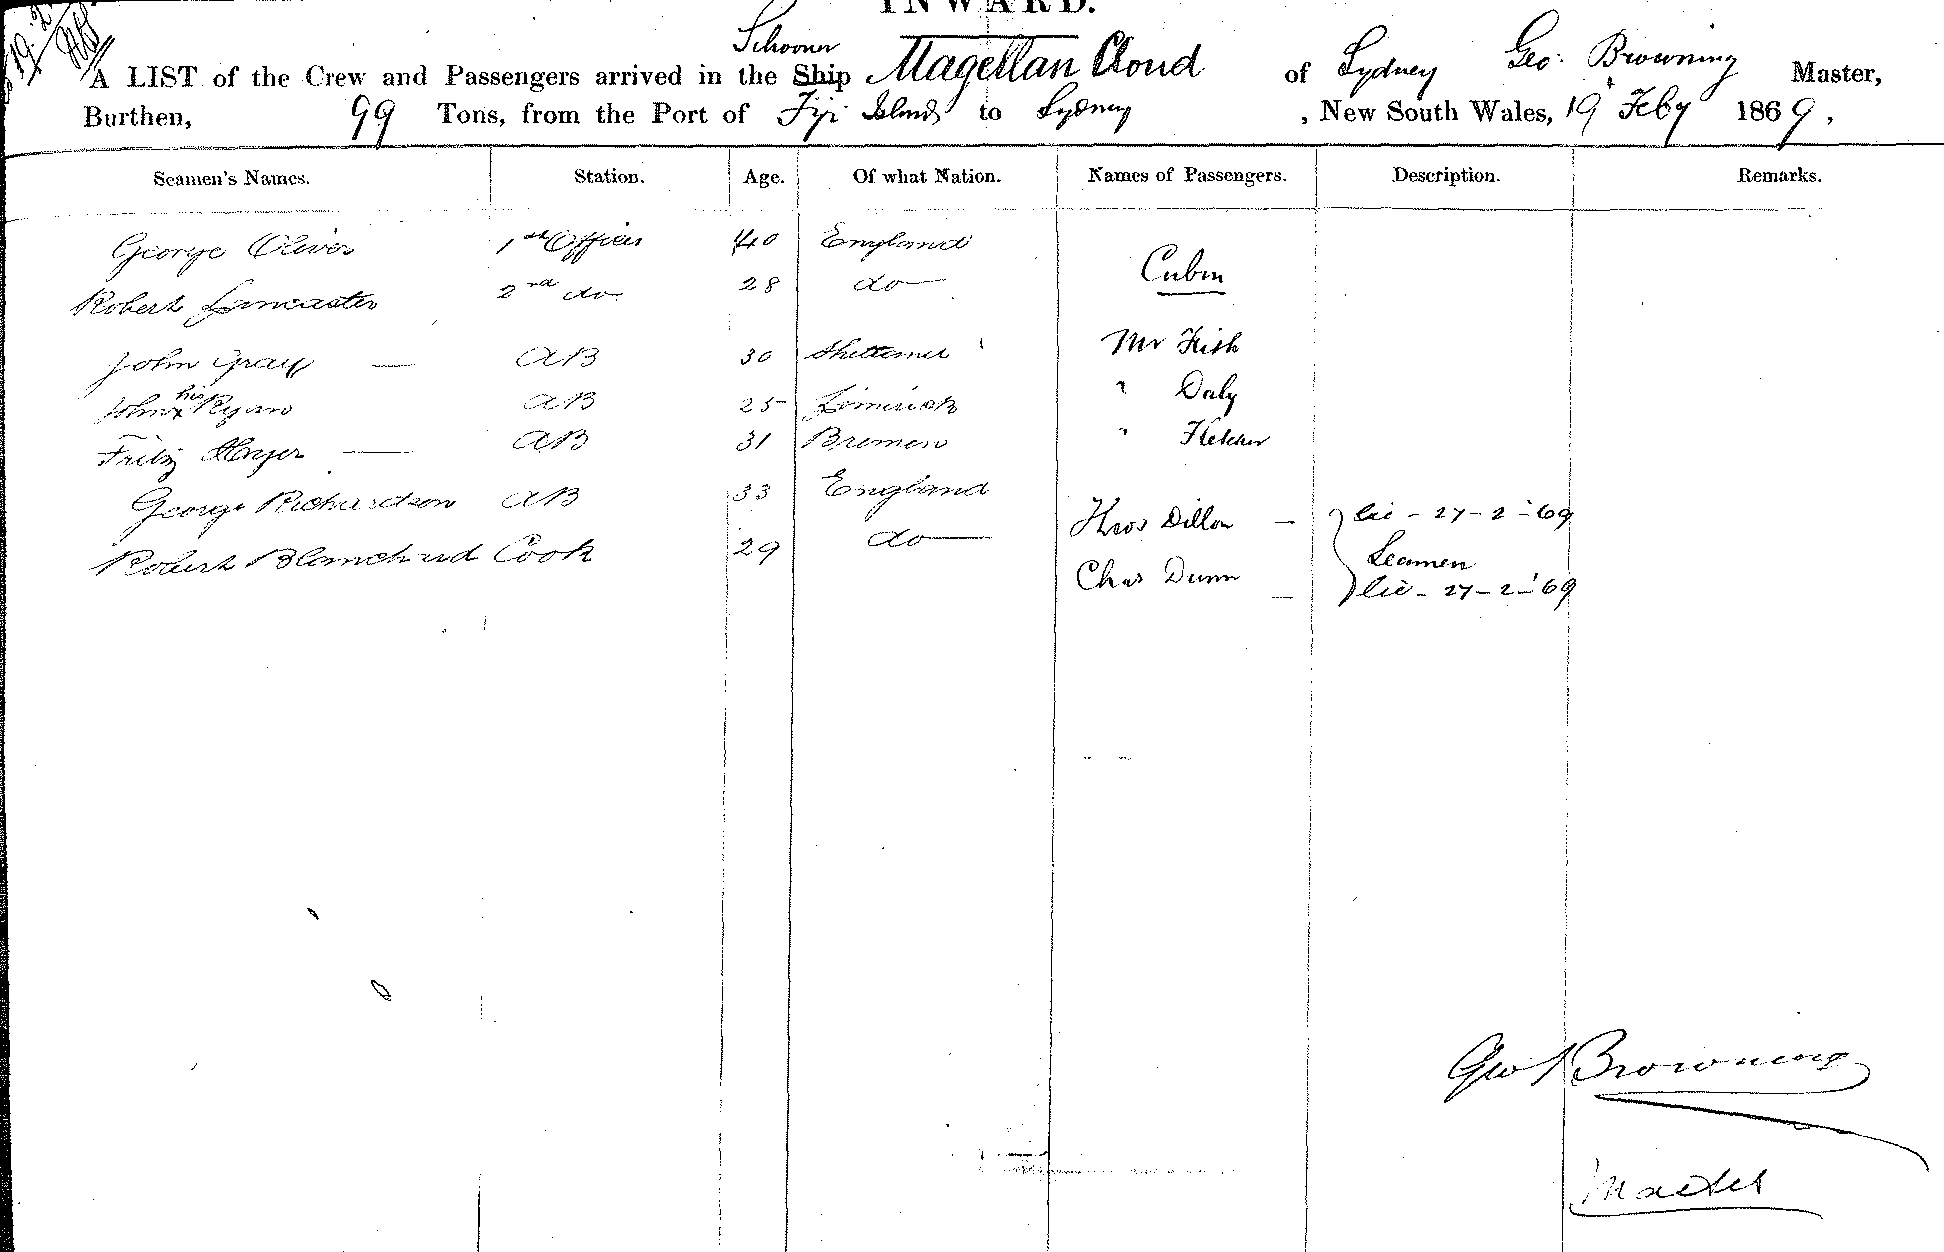 INWARD.
A LIST of the Crew and Passengers arrived in the Ship Schooner Magellan Cloud of Sydney Geo. Browning Master,
Burthen, 99 Tons, from the Port of Fiji Islands to Sydney , New South Wales, 19 Feby 1869,
Seamen's Names. Station. Age. Of what Nation. Names of Passengers. Description. Remarks.
George Oliver 1st Officer 40 England
Cabin
Robert Lancaster 2nd do 28 do
John Gray — AB 30 Mr Fish
John his x Ryan AB 25 Limerick " Daly
Fritz AB 31 Bremen " Fletcher
George Richardson AB 33 England
Thos Dillon — lic - 27-2-'69
Robert Blanchard Cook 29 do
Seamen
Chas Dunn — lic - 27-2-'69
Geo Browning
Master